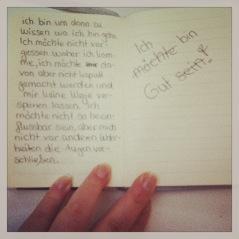 ich bin um dann zu
wissen wo ich bin gehe
Ich möchte nicht ver-
gessen woher ich kom-
me, ich möchte da-
von aber nicht kaputt
gemacht werden und
mir keine Wege ver-
sperren lassen. Ich
möchte nicht so beein-
flussbar sein, aber mich
nicht vor anderen Wahr-
heiten die Augen ver-
schließen.
Ich
möchte bin
Gut sein!